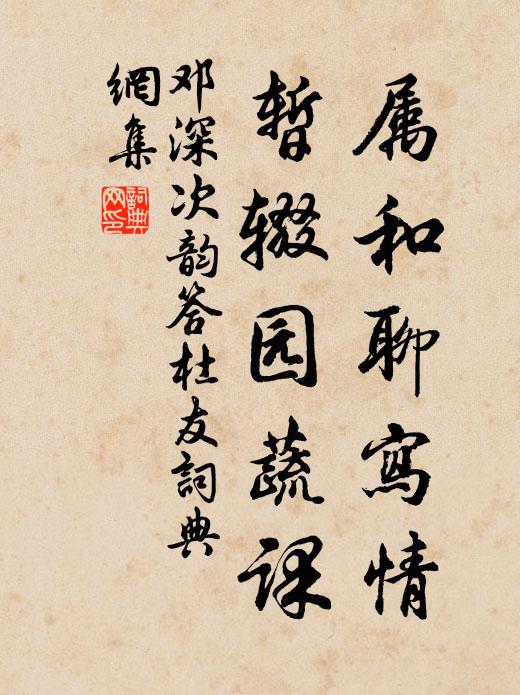 属和聊寫情
暂辍园蔬课
邓深次韵答杜友詞典
網集
詞典
网印